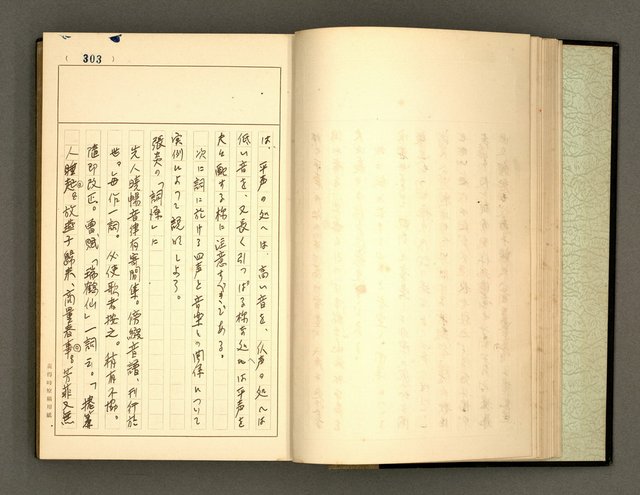 ( 303 )
は、平声の処へは、高い音を、仄声の処へは
低い音を、又長く引つぱる様な処へは平声を
夫々配する様に注意すべきである。
次に詞に於ける四声と音楽との関係について
実例によつて説明しよう。
張炎の「詞源」に
先人暁暢音律有寄閒集。傍綴音譜、刊行於
世。毎作一詞。必使歌者按之。稍有不協。
随即改正。曽賦「瑞鶴仙」一詞云。「捲簾
人睡起。放燕子帰来、商量春事。芳菲又無